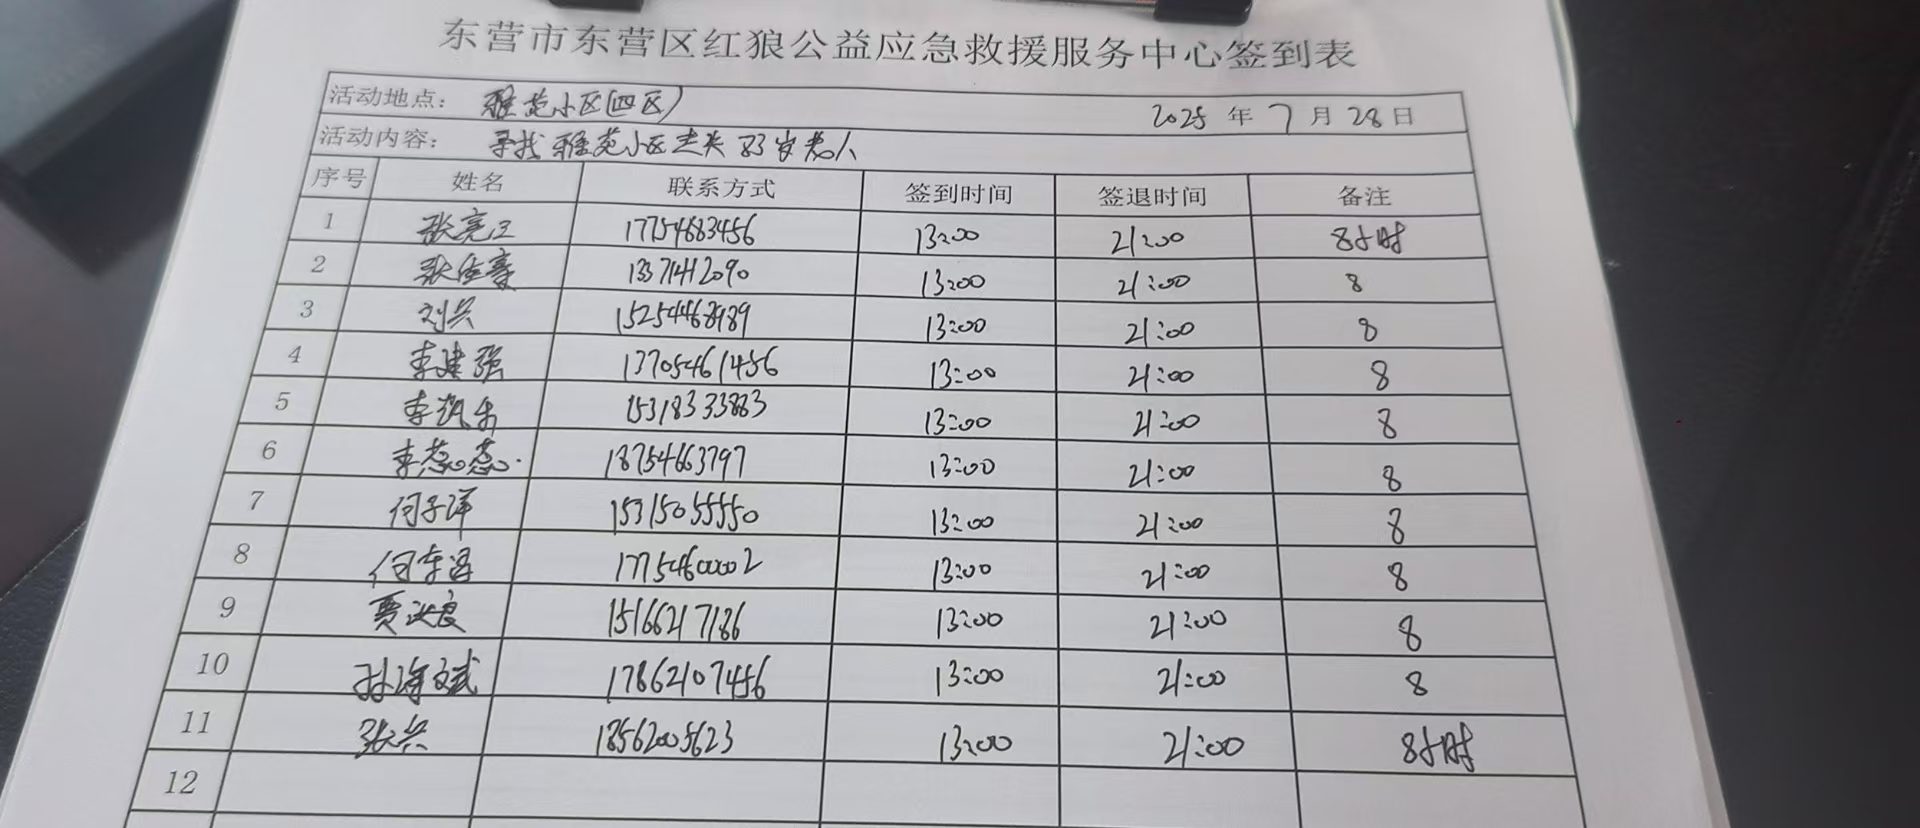 东营市东营区红狼公益应急救援服务中心签到表
活动地点: 雅苑小区(四区) 2025 年 7 月 28 日
活动内容: 寻找雅苑小区走失83岁老人
序号 姓名 联系方式 签到时间 签退时间 备注
1 张亮卫 17754683456 13:00 21:00 8小时
2 张佳豪 13371412090 13:00 21:00 8
3 刘兴 15254468989 13:00 21:00 8
4 李建强 13705461456 13:00 21:00 8
5 李凯乐 15318333883 13:00 21:00 8
6 李蕊蕊 18754663797 13:00 21:00 8
7 何子洋 15315055550 13:00 21:00 8
8 何 17754600002 13:00 21:00 8
9 贾洪良 15166217186 13:00 21:00 8
10 孙 17862107456 13:00 21:00 8
11 张兴 18562005623 13:00 21:00 8小时
12